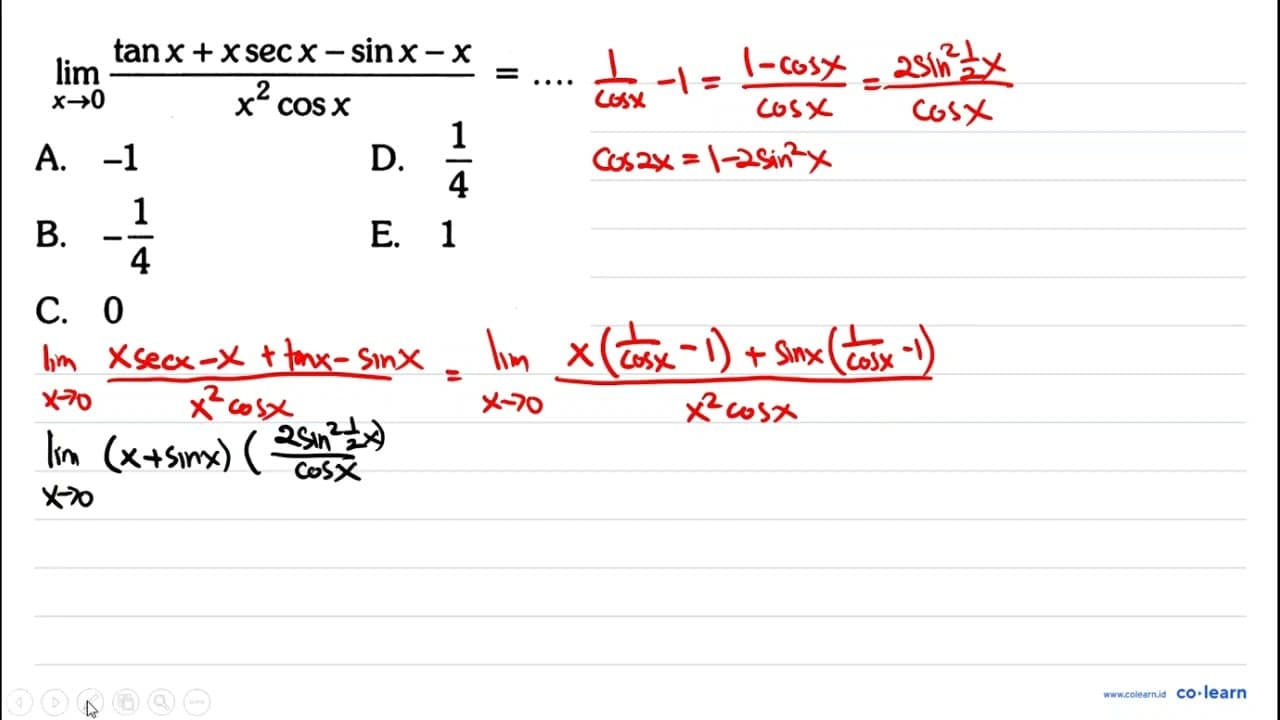 lim x→0 (tan x + x sec x − sin x − x)/(x² cos x) = ....
1/cosx −1 = (1−cosx)/cosx = (2sin² ½x)/cosx
cos2x = 1−2sin²x
A. −1
D. 1/4
B. −1/4
E. 1
C. 0
lim x→0 (xsecx − x + tanx − sinx)/(x² cosx) = lim x→0 (x(1/cosx − 1) + sinx(1/cosx −1))/(x² cosx)
lim x→0 (x+sinx) ((2sin² ½x)/cosx
www.colearn.id co·learn